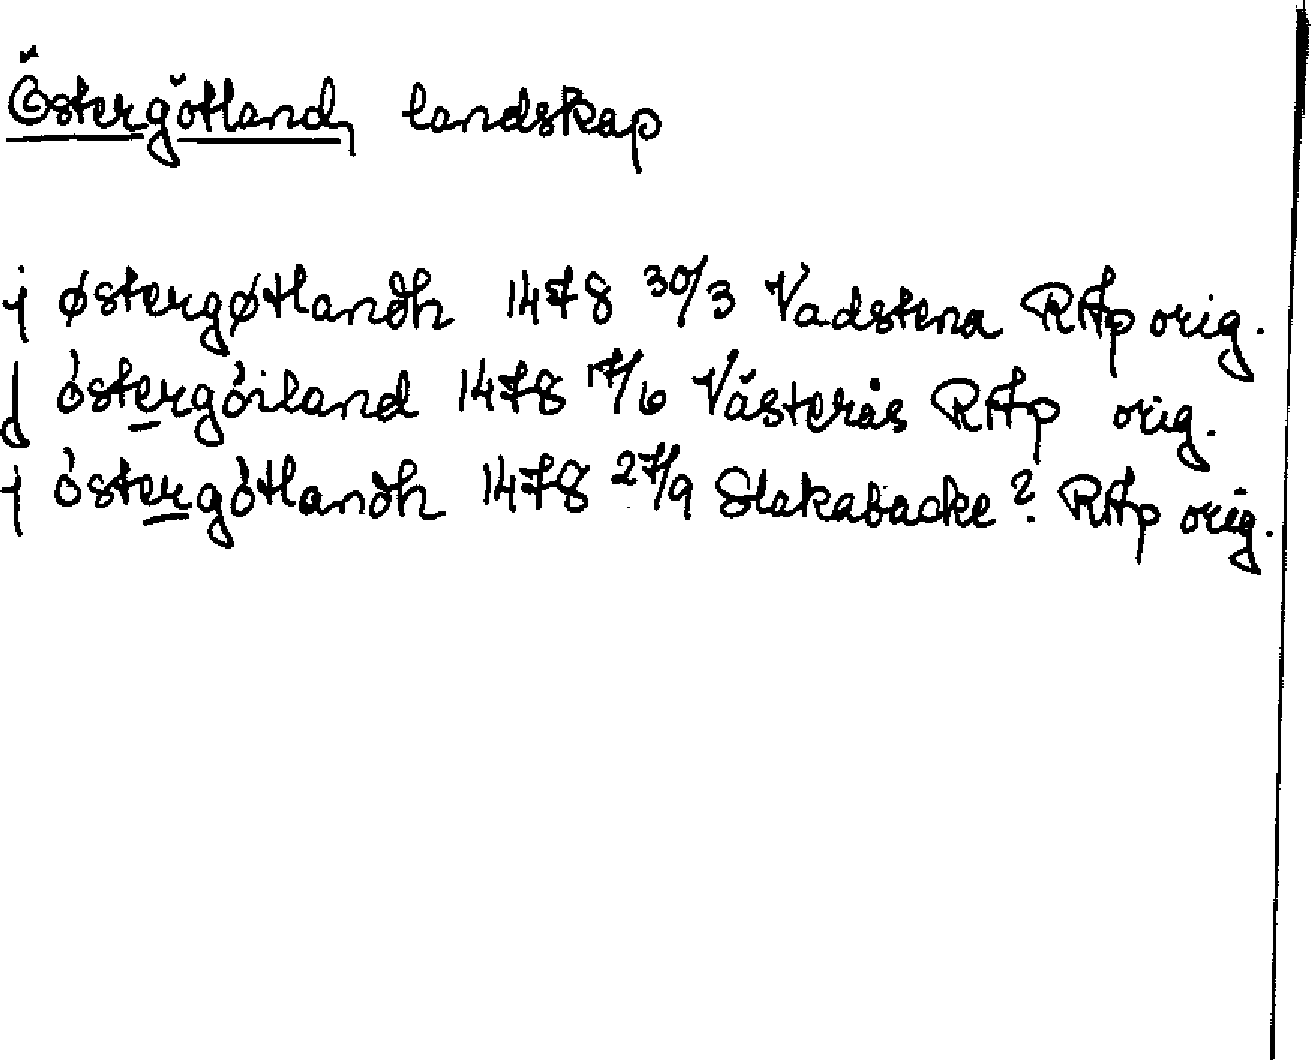 Östergötland, landskap
j østergøtlandh 1478 30/3 Vadstena RAp orig.
j óstergóiland 1478 17/6 Västerås RAp orig.
j óstergótlandh 1478 27/9 Slakabacke? RAp orig.